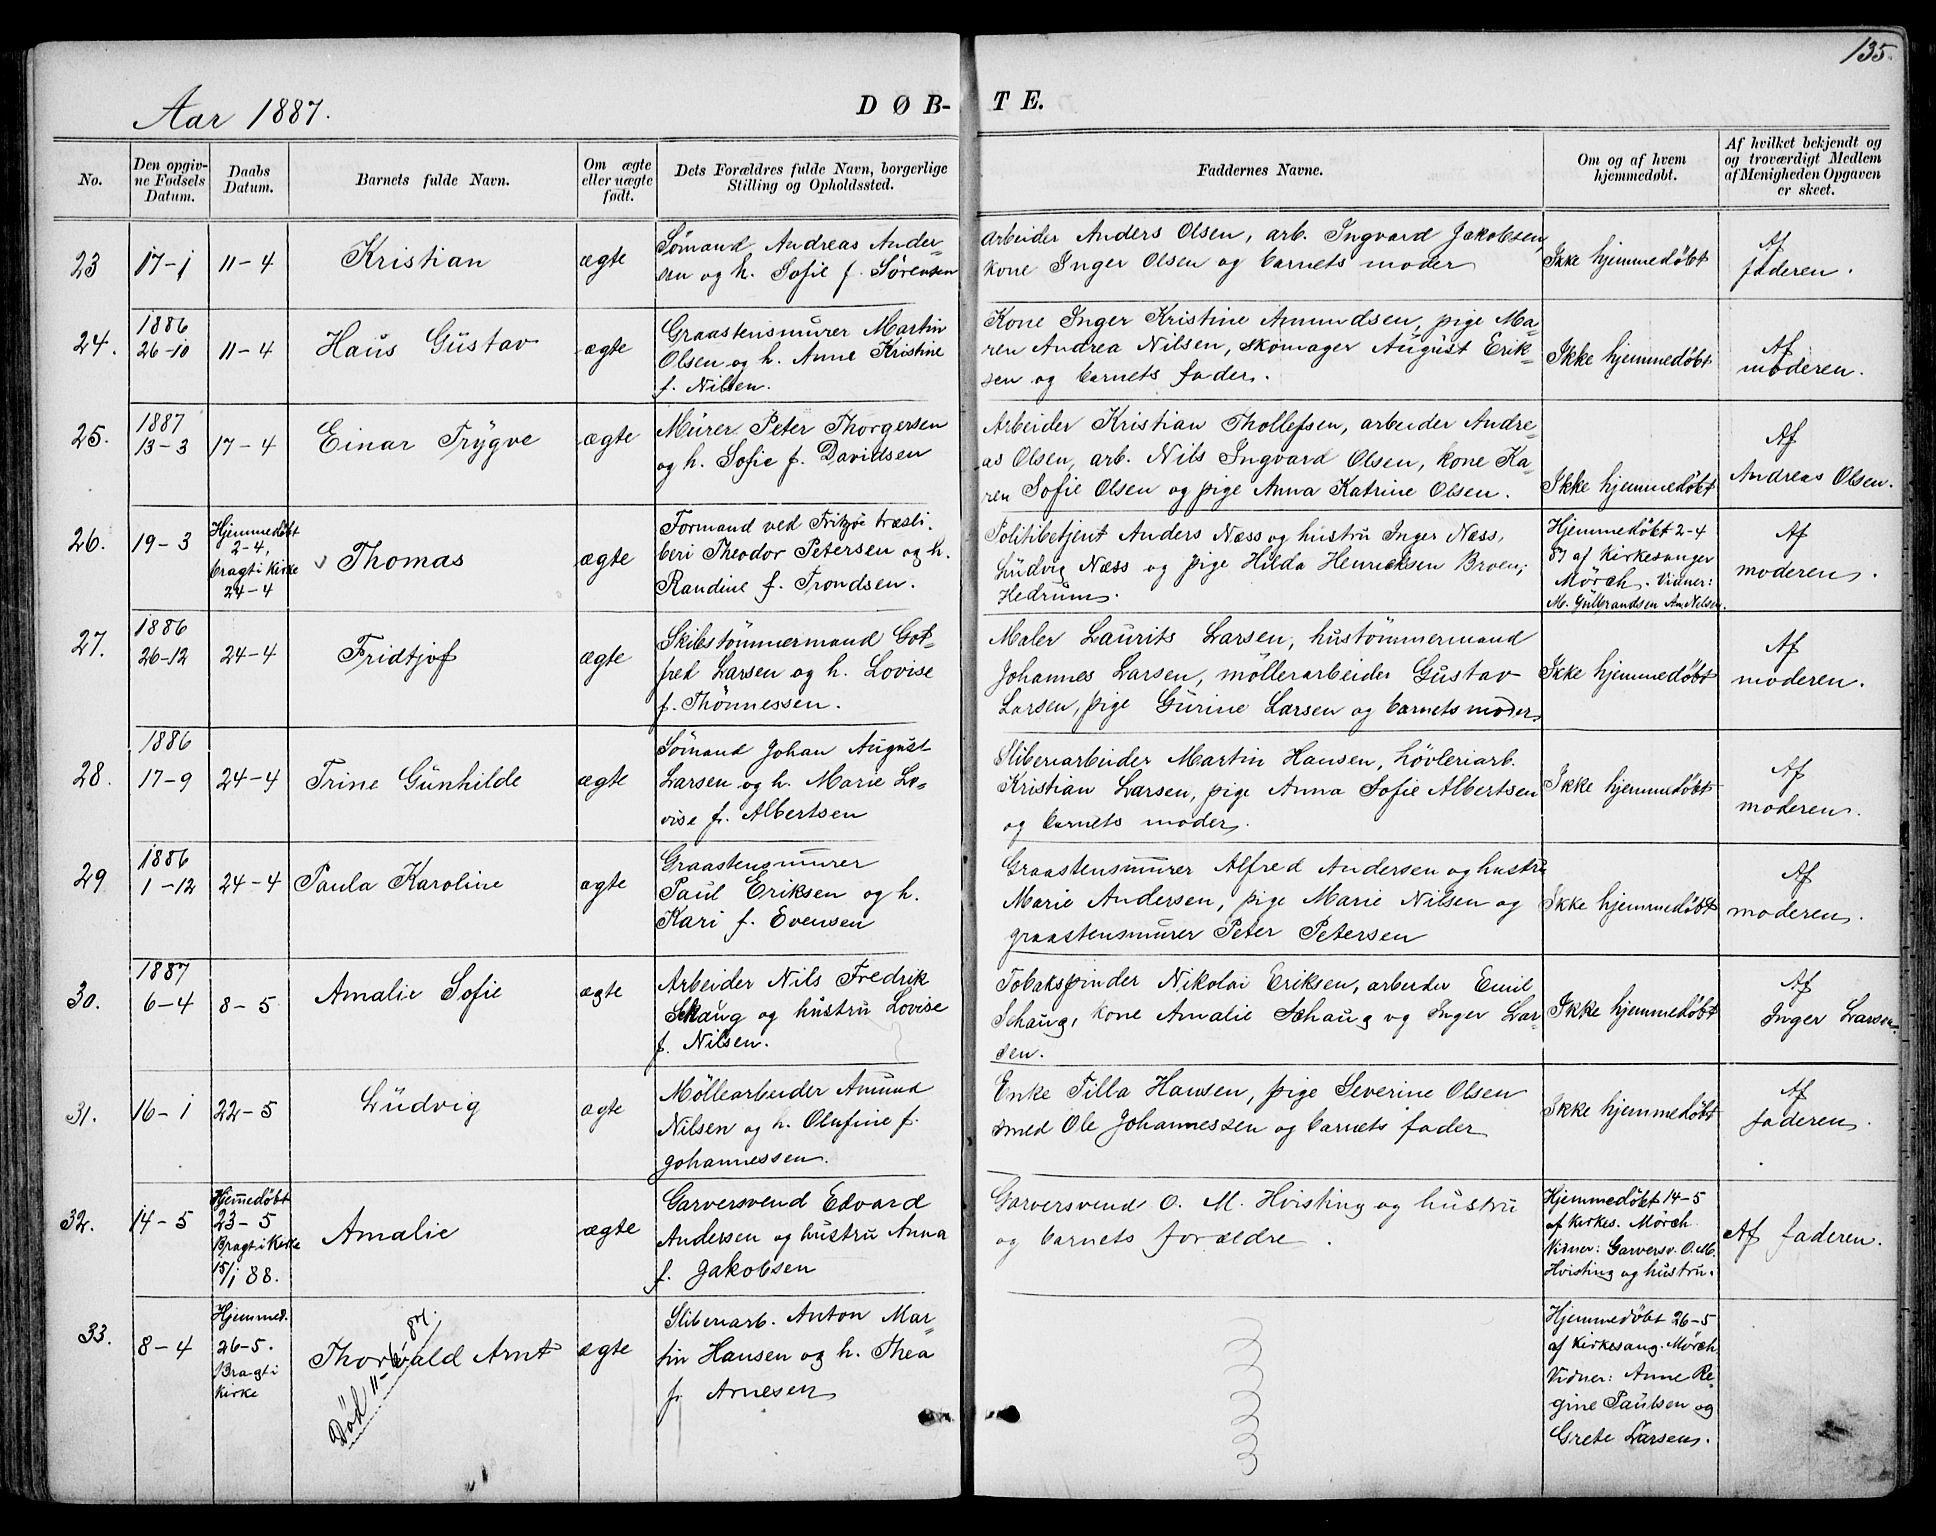 135.
Aar 1887.
DØB-TE.
No.
Den opgiv-
ne Fødsels
Datum.
Daabs
Datum.
Barnets fulde Navn.
Om ægte
eller uægte
født.
Dets Forældres fulde Navn, borgerlige
Stilling og Opholdssted.
Faddernes Navne.
Om og af hvem
hjemmedøbt.
Af hvilket bekjendt og
og troværdigt Medlem
af Menigheden Opgaven
er skeet.
23
17-1
11-4
Kristian
ægte
Sømand Andreas Ander-
sen og h. Sofie f. Sørensen
Arbeider Anders Olsen, arb. Ingvard Jakobsen,
kone Inger Olsen og barnets moder
Ikke hjemmedøbt
Af
faderen.
24.
1886
26-10
11-4
Hans Gustav
ægte
Graastensmurer Martin
Olsen og h. Anne Kristine
f. Nilsen.
Kone Inger Kristine Amundsen, pige Ma-
ren Andrea Nilsen, skomager August Erik-
sen og barnets fader.
Ikke hjemmedøbt
Af
moderen.
25.
1887
13-3
17-4
Einar Trygve
ægte
Murer Peter Thorgersen
og h. Sofie f. Davidsen
Arbeider Kristian Thollefsen, arbeider Andre-
as Olsen, arb. Nils Ingvard Olsen, kone Ka-
ren Sofie Olsen og pige Anna Katrine Olsen.
Ikke hjemmedøbt
Af
Andreas Olsen.
26.
19-3
Hjemmedøbt
2-4,
bragt i kirke
24-4
Thomas
ægte
Formand ved Fritzøe træsli-
beri Theodor Petersen og h.
Randine f. Trondsen.
Politibetjent Anders Næss og hustru Inger Næss,
Ludvig Næss og pige Hilda Henriksen Broen,
Hedrum.
Hjemmedøbt 2-4
87 af kirkesanger
Mörch. Vidner:
M. Gulbrandsen Am Nilsen.
Af
moderen.
27.
1886
26-12
24-4
Fridtjof
ægte
Skibstømmermand Got-
fred Larsen og h. Lovise
f. Thönnessen.
Maler Laurits Larsen, hustømmermand
Johannes Larsen, møllerarbeider Gustav
Larsen, pige Gurine Larsen og barnets moder
Ikke hjemmedøbt
Af
moderen.
28.
1886
17-9
24-4
Trine Gunhilde
ægte
Sømand Johan August
Larsen og h. Marie Lo-
vise f. Albertsen
Sliberiarbeider Martin Hansen, høvleriarb.
Kristian Larsen, pige Anna Sofie Albertsen
og barnets moder.
Ikke hjemmedøbt
Af
moderen.
29
1886
1-12
24-4
Paula Karoline
ægte
Graastensmurer
Paul Eriksen og h.
Kari f. Evensen
Graastensmurer Alfred Andersen og hustru
Marie Andersen, pige Marie Nilsen og
graastensmurer Peter Petersen
Ikke hjemmedøbt
Af
moderen.
30.
1887
6-4
8-5
Amalie Sofie
ægte
Arbeider Nils Fredrik
Schaug og hustru Lovise
f. Nilsen.
Tobakspinder Nikolai Eriksen, arbeider Emil
Schaug, kone Amalie Schaug og Inger Lar-
sen.
Ikke hjemmedøbt
Af
Inger Larsen.
31.
16-1
22-5
Ludvig
ægte
Møllearbeider Amund
Nilsen og h. Olufine f.
Johannessen.
Enke Tilla Hansen, pige Severine Olsen
smed Ole Johannessen og barnets fader
Ikke hjemmedøbt
Af
faderen.
32.
14-5
Hjemmedøbt
23-5
Bragt i kirke
15/1 88.
Amalie
ægte
Garversvend Edvard
Andersen og hustru Anna
f. Jakobsen
Garversvend O. M. Hvisting og hustru
og barnets forældre.
Hjemmedøbt 14-5
af Kirkes. Mörch
Vidner: Garversv. O. M.
Hvisting og hustru.
Af faderen.
33.
8-4
Hjemmed.
26-5.
Bragt i
kirke
Thorvald Arnt
ægte
Sliberiarb. Anton Mar-
tin Hansen og h. Thea
f. Arnesen
Hjemmedøbt 26-5
af Kirkesang. Mörch
Vidner: Anne Re-
gine Paulsen og
Grete Larsen.
Død 11-6 87.